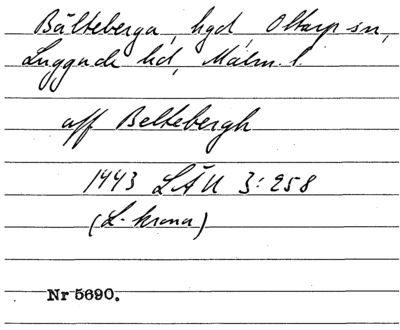 Bälteberga, hgd, Ottarp sn,
Luggude hd, Malm. l.
aff Beltebergh
1443 LÄU 3:258
(L-krona)
Nr 5690.